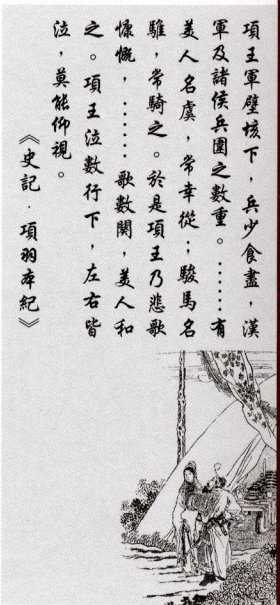 項王軍壁垓下，兵少食盡，漢
軍及諸侯兵圍之數重。……有
美人名虞，常幸從；駿馬名
騅，常騎之。於是項王乃悲歌
慷慨，……歌數闋，美人和
之。項王泣數行下，左右皆
泣，莫能仰視。
《史記·項羽本紀》